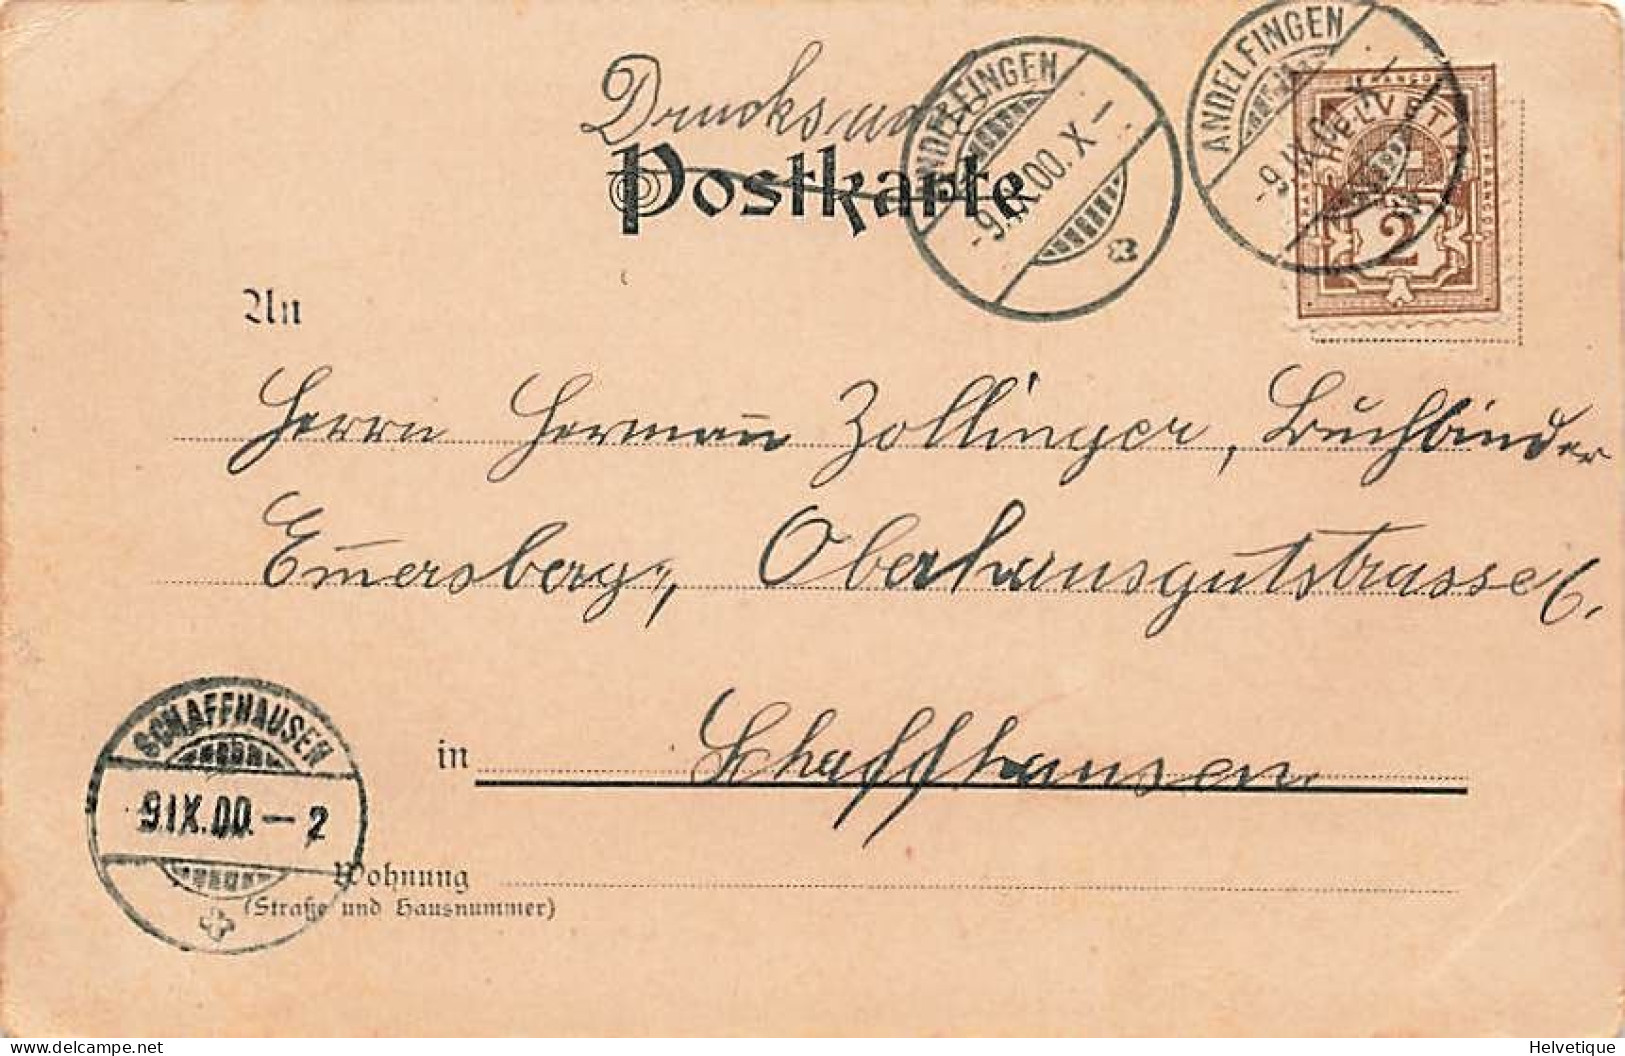 Drucksache
Postkarte
ANDELFINGEN
-9.IX.00.X-
ANDELFINGEN
-9.IX.00.X-
FRANCO
HELVETIA
2
An
Herrn Hermañ Zollinger, Buchbinder
Em̃ersberg, Oberhausgutstrasse 6.
in Schaffhausen.
SCHAFFHAUSEN
9.IX.00.-2
Wohnung
(Straße und Hausnummer)
delcampe.net
Helvetique